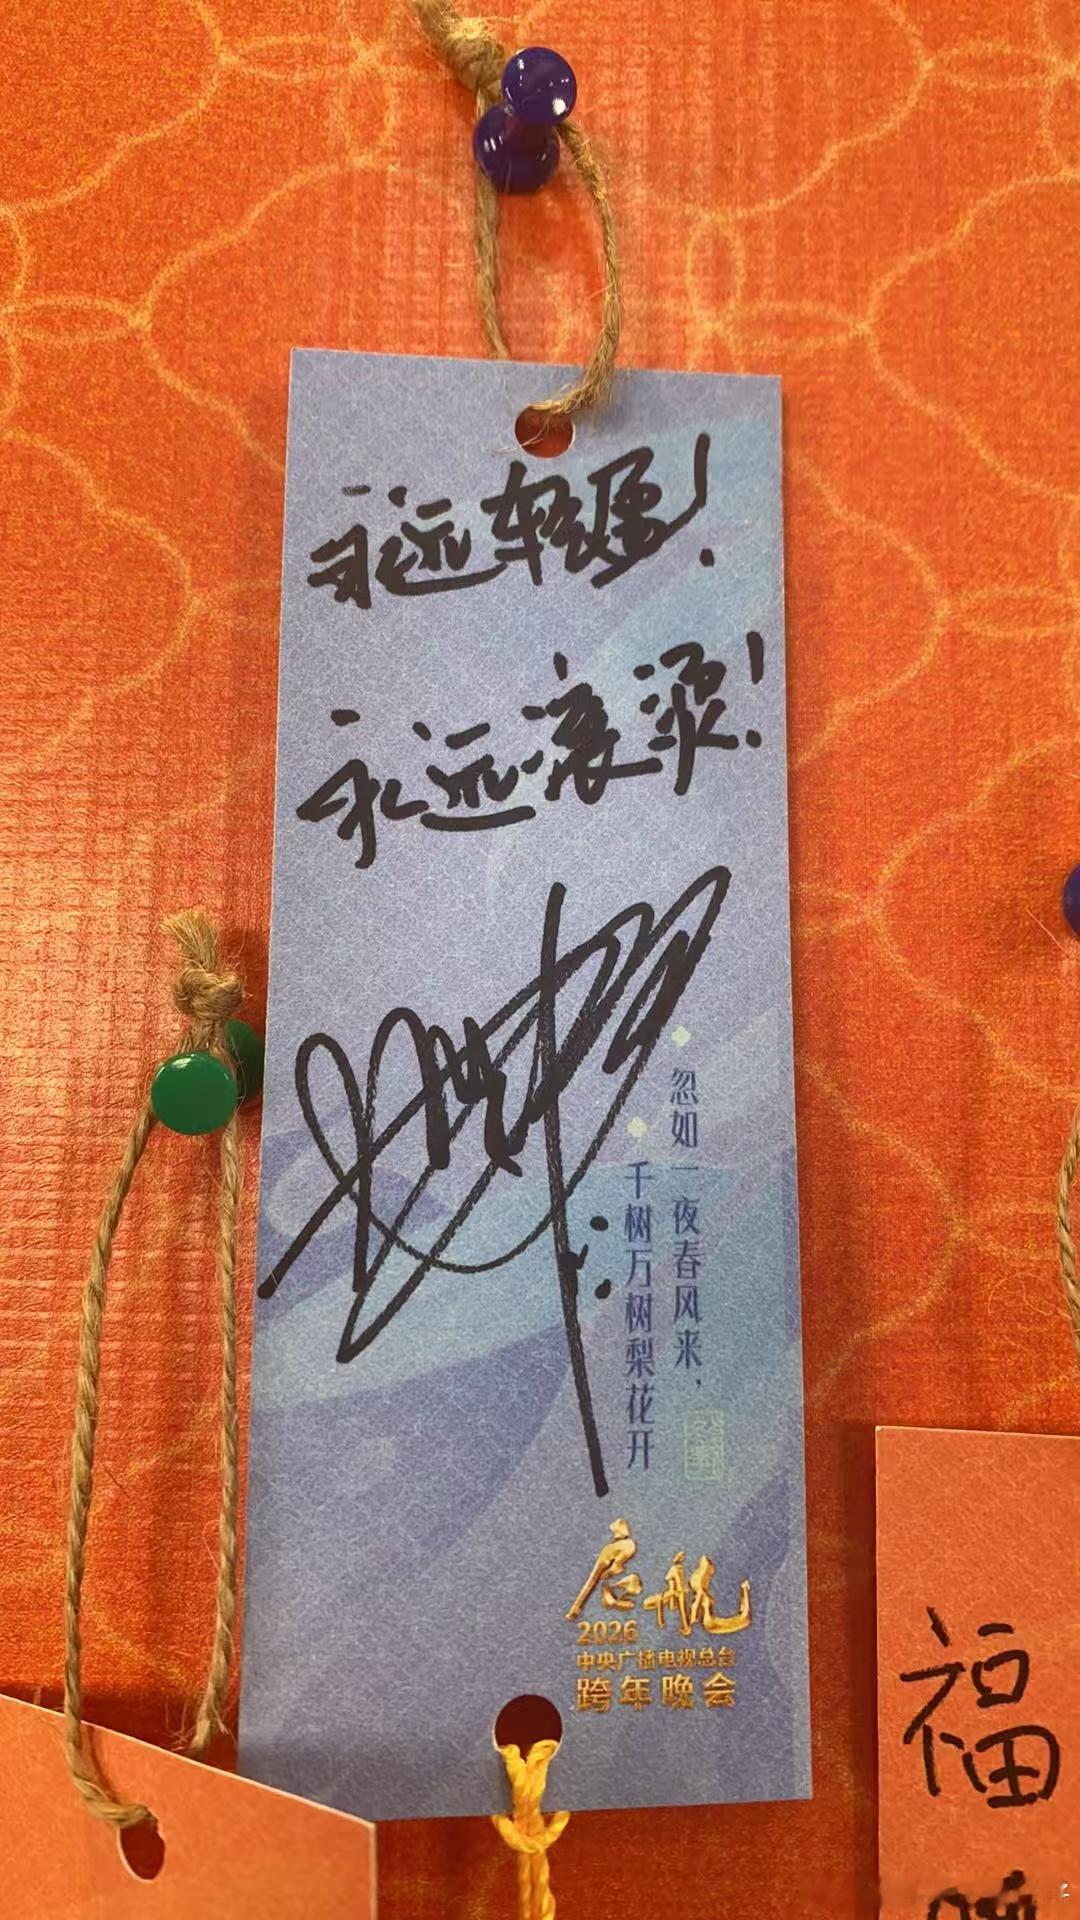 永远轻盈！
永远滚烫！
忽如一夜春风来，
千树万树梨花开
启航
2026
中央广播电视总台
跨年晚会
福